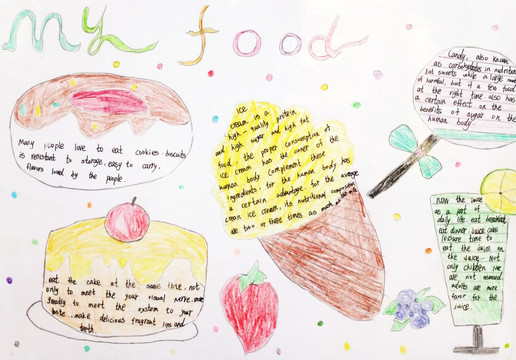 My food
Many people love to eat cookies. biscuits
is resistant to storage, easy to carry,
flavors loved by the people
ice
cream is a
high-quality protein
and high sugar and high fat
food. the proper consumption of
ice cream has the
human body component these
ingredients. for the human body has
a certain advantage for the average
cream ice cream, its nutritional
are two or three times as much as
Candy, also known
as carbohydrates in nutrition
Eat sweets while a large
of harmful, but if a tea food
at the right time also has
a certain effect on the
benefits of sugar on the
human body
eat the cake at the same time, not
only to meet the your visual nerve, more
to meet the system to your
taste. make delicious fragrant lips and
teeth.
now the juice
as a part of
daily life. eat breakfast
eat dinner juice cake
leisure time to
eat the juice on
the juice. Not
only children like
are not missed
adults are more
favor for the
juice.